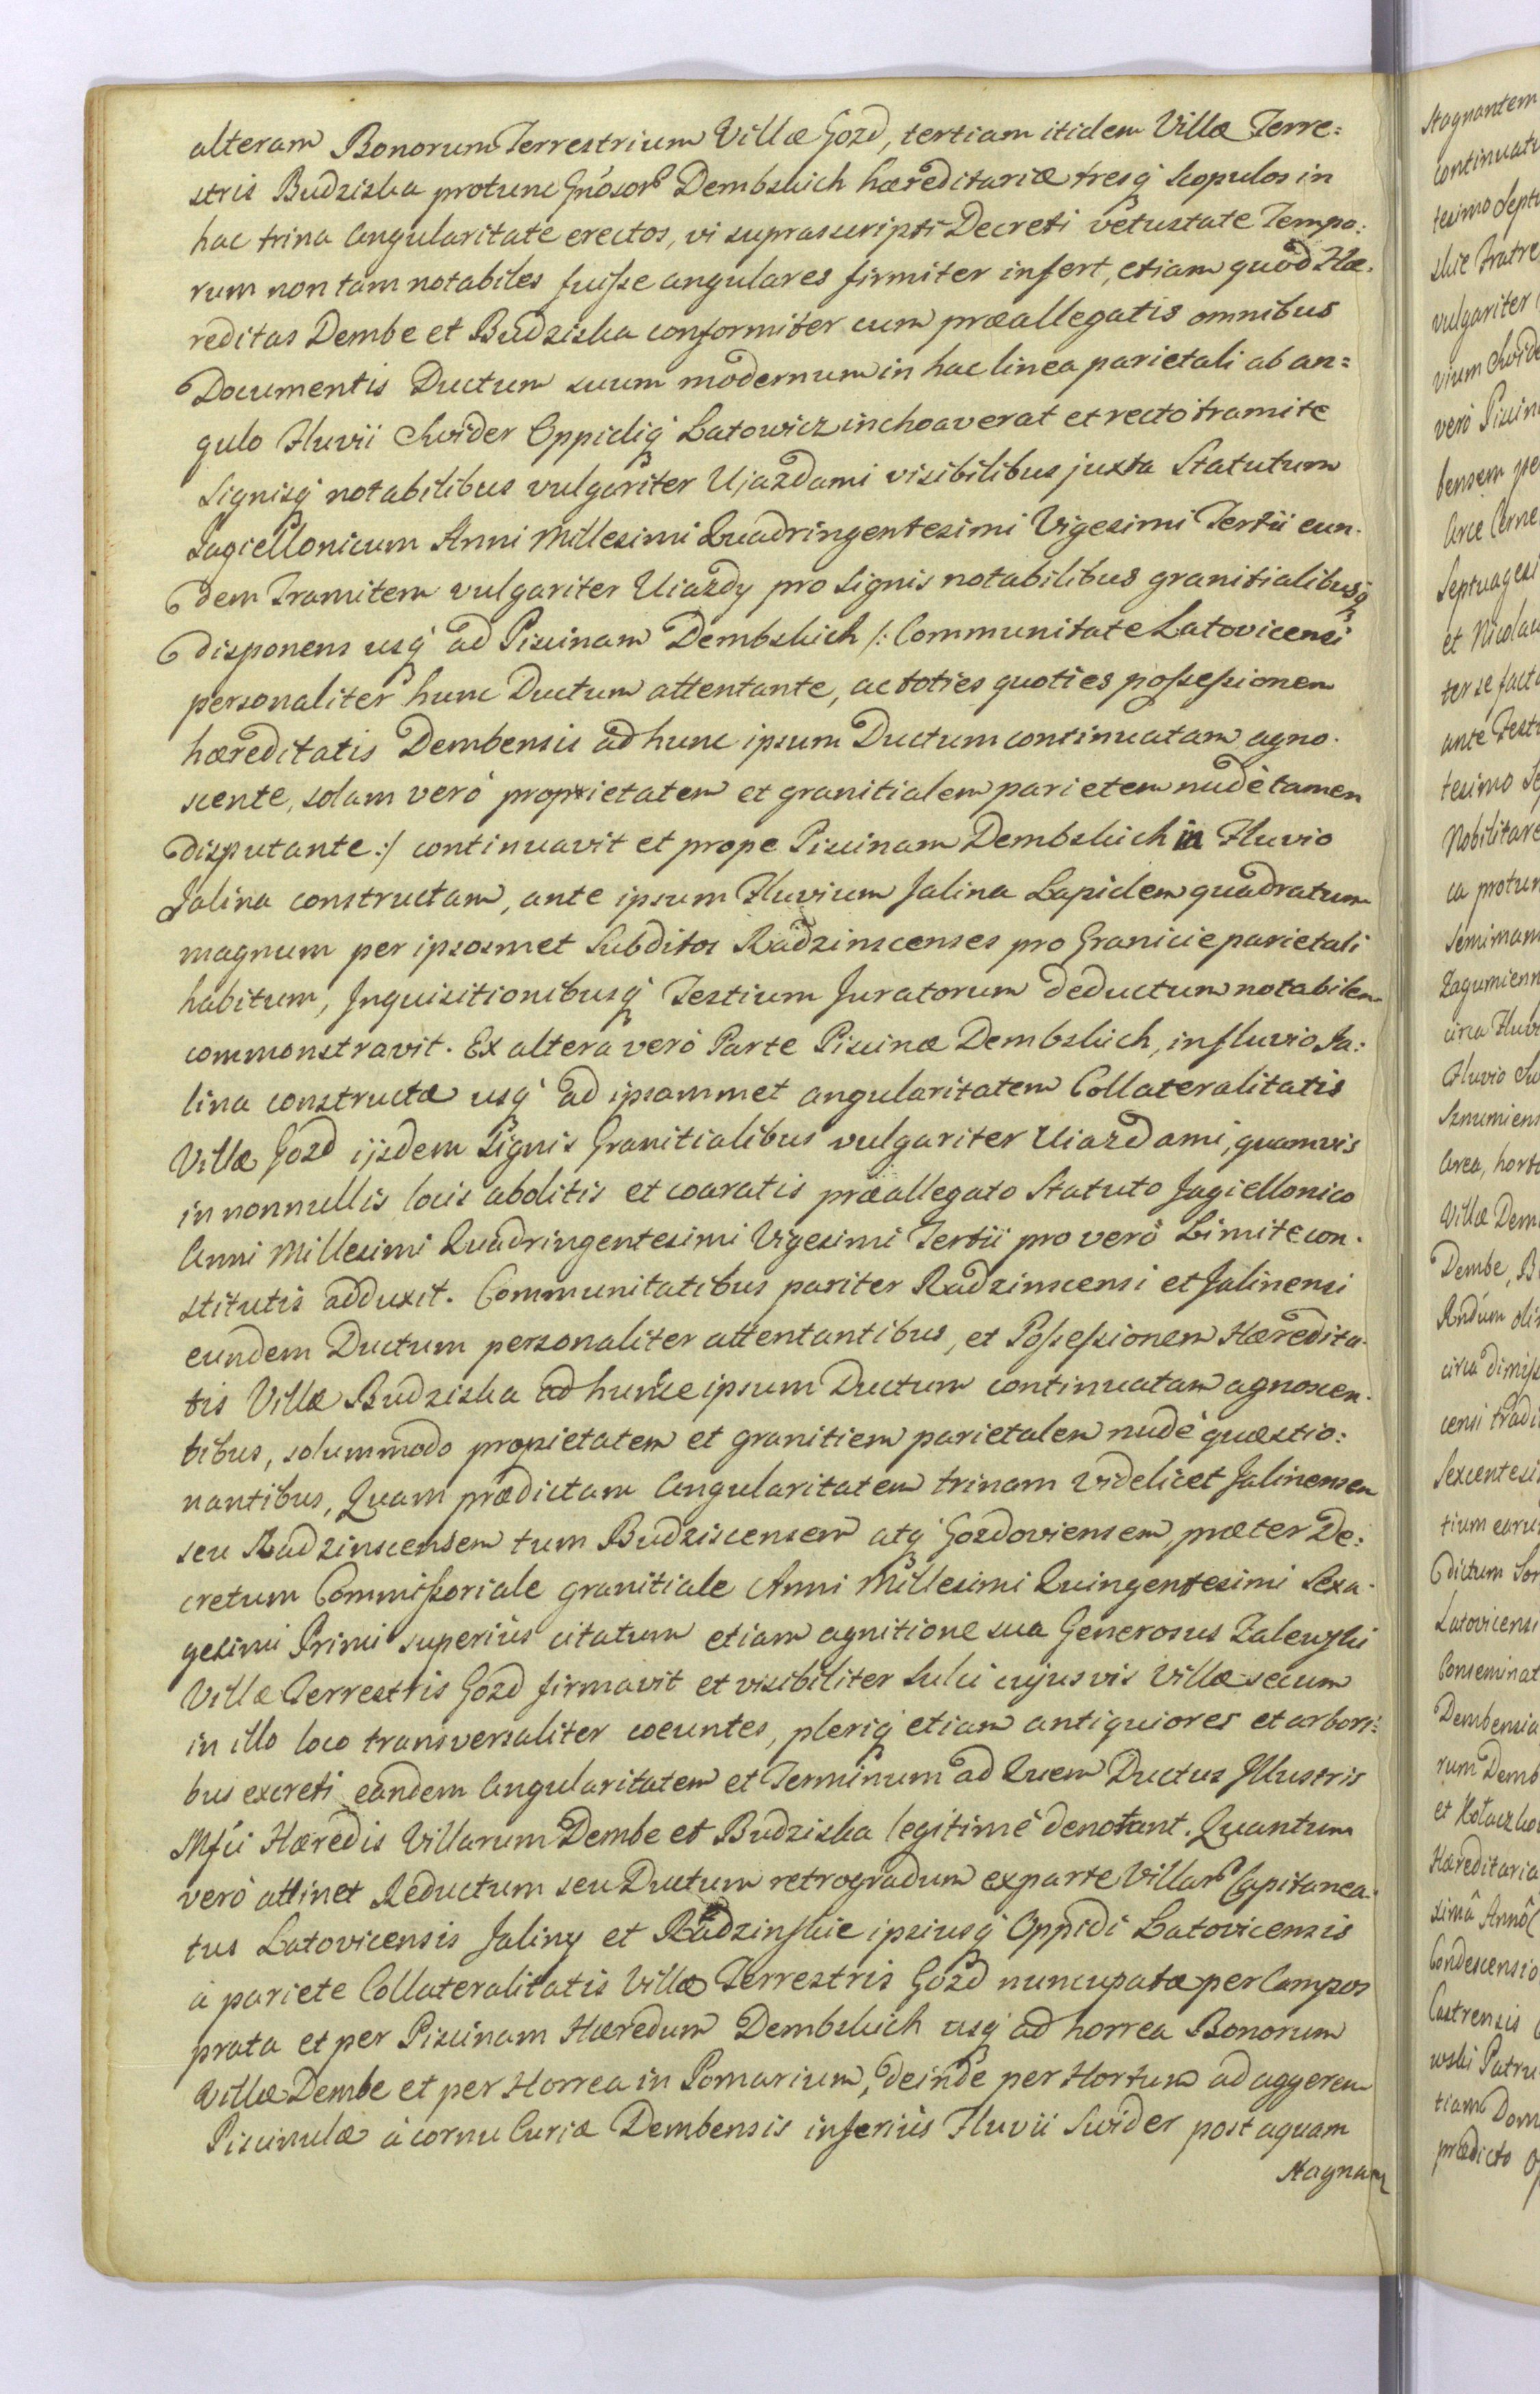 alteram Bonorum Terrestrium Villæ Gozd, tertiam itidem Villæ Terre=
stris Budziska protunc Gnosorb Dembskich hæreditariæ tresq́ scopulos in
hac trina angularitate erectos, vi suprascripti Decreti vetustate Tempo=
rum non tam notabiles fuisse angulares firmiter infert, etiam quòd Hæ=
reditas Dembe et Budziska conformiter cum præallegatis omnibus
Documentis Ductum suum modernum in hac linea parietali ab an=
gulo Fluvii Swider Oppidiq́ Latowicz inchoaverat et recto tramite
Signisq́ notabilibus vulgariter Ujazdami visibilibus juxta Statutum
Jagiellonicum Anni Millesimi Quadringentesimi Vigesimi Tertii eun-
dem Tramitem vulgariter Uiazdy pro Signis notabilibus granitialibusq́
disponens usq́ ad Piscinam Dembskich /: Communitate Latovicensi
personaliter hunc Ductum attentante, ac toties quoties possessionem
hæreditatis Dembensis ad hunc ipsum Ductum continuatam agno-
scente, solam verò proprietatem et granitialem parietem nudè tamen
disputante :/ continuavit et prope Piscinam Dembskich in Fluvio
Jalina constructam, ante ipsum Fluvium Jalina Lapidem quadratum
magnum per ipsosmet Subditos Radzinscenses pro Granicie parietali
habitum, Inquisitionibusq́ Testium Juratorum deductum notabilem
commonstravit. Ex altera verò Parte Piscinæ Dembskich, in fluvio Ja=
lina constructæ usq́ ad ipsammet angularitatem Collateralitatis
Villæ Gozd ijsdem Signis Granitialibus vulgariter Uiazdami, quamvis
in nonnullis locis abolitis et coaratis præallegato Statuto Jagiellonico
Anni Millesimi Quadringentesimi Vigesimi Tertii pro verò Limite con-
stitutis adduxit. Communitatibus pariter Radzinscensi et Jalinensi
eundem Ductum personaliter attentantibus, et Possessionem Hæredita-
tis Villæ Budziska ad hunce ipsum Ductum continuatam agnoscen-
tibus, solummodo propietatem et granitiem parietalem nudè quæstio=
nantibus, Quam prædictam Angularitatem trinam videlicet Jalinensem
seu Radzinscensem tum Budziscensem atq́ Gozdoviensem, præter De=
cretum Commissoriale granitiale Anni Millesimi Quingentesimi Sexa-
gesimi Primi superiùs citatum etiam agnitione sua Generosus Zalewski
Villæ Terrestris Gozd firmavit et visibiliter Sulci cujusvis Villæ secum
in illo loco transversaliter coeuntes, pleriq́ etiam antiquiores et arbori=
bus excreti eandem Angularitatem et Terminum ad Quem Ductus Illustris
Mfci Hæredis Villarum Dembe et Budziska legitimè denotant. Quantum
verò attinet Reductum seu Ductum retrogradum ex parte Villarb Capitanea=
tus Latovicensis Jaliny et Radzinskie ipsiusq́ Oppidi Latovicensis
à pariete Collateralitatis Villæ Terrestris Gozd nuncupatæ per Campos
prata et per Piscinam Hæredum Dembskich usq́ ad horrea Bonorum
Villæ Dembe et per Horrea in Pomarium, deinde per Hortum ad aggerem
Piscinulæ à cornu Curiæ Dembensis inferiùs Fluvii Swider post aquam
stagnam
stagnantem
continuatu
tesimo Septu
skie Fratre
vulgariter
vium Swide
verò Piscin
bensem pe
Arce
Septuagesi
et Nicolau
ter se facta
ante Festu
tesimo Se
Nobilitare
ca protun
Zagumienn
circa Fluvi
Fluvio Sw
Area, horto
Villæ Dem
Dembe, B
circa dimiss
censi tradi
Sexcentesi
tium earu
dictum Sor
Latovicensi
Conseminat
Dembensia
rum Demb
Hæreditaria
Condescensio
Castrensis
wski Patru
tiam Dom
prædicto O